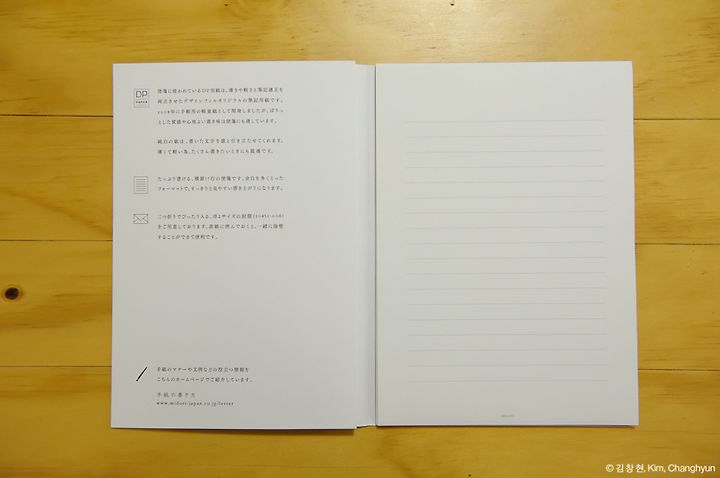 DP
PAPER
便箋に使われているDP用紙は、薄さや軽さと筆記適正を
両立させたデザインフィルオリジナルの筆記用紙です。
2008年に手帳用の軽量紙として開発しましたが、ぱりっ
とした質感や心地よい書き味は便箋にも適しています。
純白の紙は、書いた文字を凛と引き立たせてくれます。
薄くて軽い為、たくさん書きたいときにも最適です。
たっぷり書ける、横罫17行の便箋です。余白を多くとった
フォーマットで、すっきりと見やすい書き上がりになります。
二つ折りでぴったり入る、洋2サイズの封筒(20451-006)
をご用意しております。表紙に挟んでおくと、一緒に保管
することができて便利です。
手紙のマナーや文例などの役立つ情報を
こちらのホームページでご紹介しています。
手紙の書き方
www.midori-japan.co.jp/letter
© 김창현, Kim, Changhyun